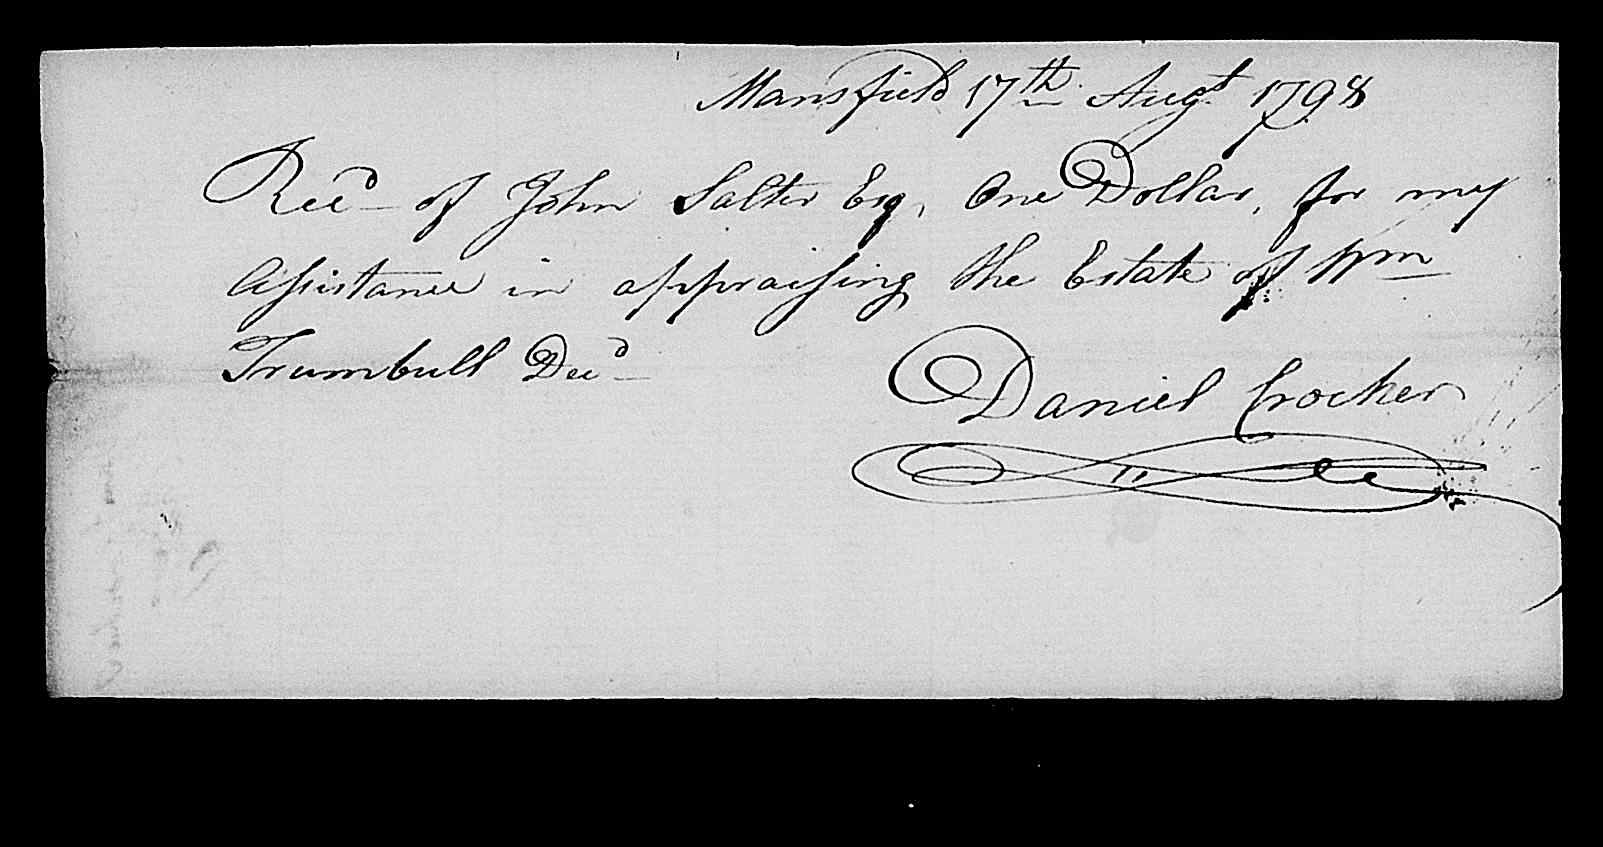 Mansfield 17th Augt 1798
Recd of John Salter Esq, One Dollar, for my
assistance in appraising the Estate of Wm
Trumbull Decd
Daniel Crocker